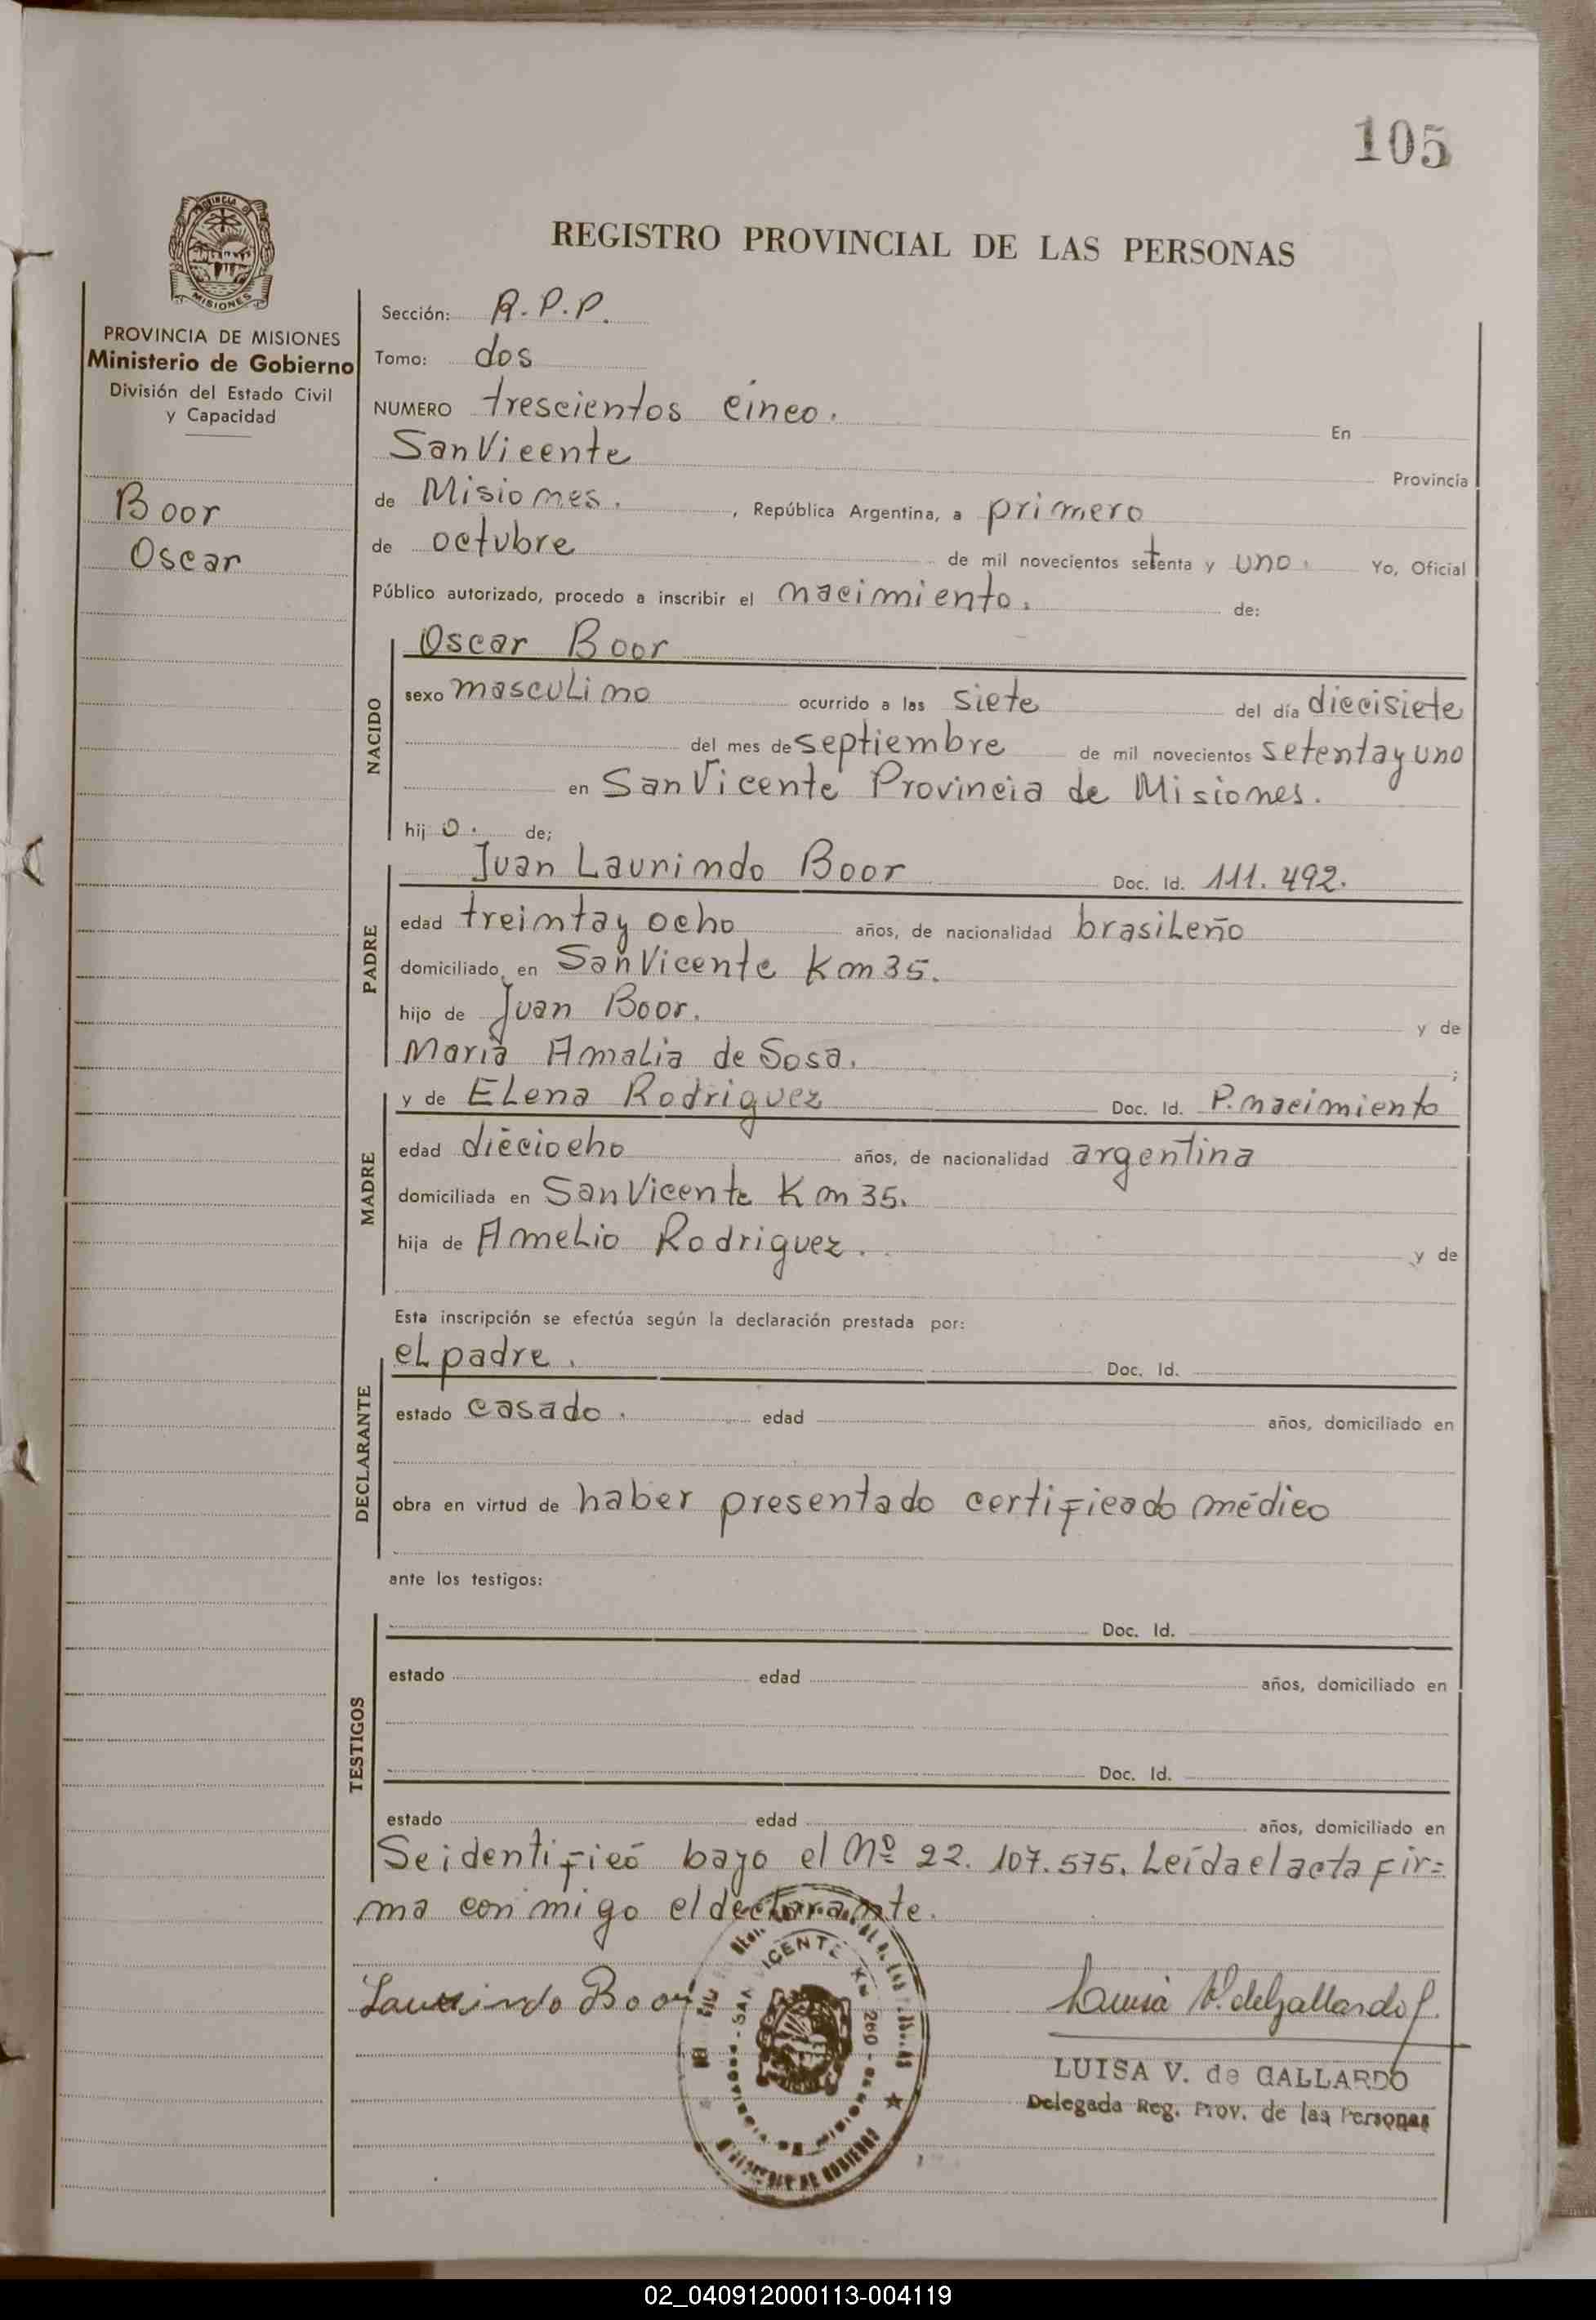 105
PROVINCIA DE
MISIONES
REGISTRO PROVINCIAL DE LAS PERSONAS
PROVINCIA DE MISIONES
Ministerio de Gobierno
División del Estado Civil
y Capacidad
Boor
Oscar
Sección: R.P.P.
Tomo: dos
NUMERO trescientos cinco. En
San Vicente Provincia
de Misiones. , República Argentina, a primero
de octubre de mil novecientos setenta y uno. Yo, Oficial
Público autorizado, procedo a inscribir el nacimiento. de:
NACIDO
Oscar Boor
sexo masculino ocurrido a las siete del día diecisiete
del mes de septiembre de mil novecientos setenta y uno
en San Vicente Provincia de Misiones.
hij o. de;
PADRE
Juan Laurindo Boor Doc. Id. 111.492.
edad treinta y ocho años, de nacionalidad brasileño
domiciliado en San Vicente Km 35.
hijo de Juan Boor. y de
María Amalia de Sosa. ;
MADRE
y de Elena Rodriguez Doc. Id. P. nacimiento
edad dieciocho años, de nacionalidad argentina
domiciliada en San Vicente Km 35.
hija de Amelio Rodriguez. y de
Esta inscripción se efectúa según la declaración prestada por:
DECLARANTE
el padre. Doc. Id.
estado casado. edad años, domiciliado en
obra en virtud de haber presentado certificado médico
ante los testigos:
TESTIGOS
Doc. Id.
estado edad años, domiciliado en
Doc. Id.
estado edad años, domiciliado en
Se identificó bajo el Nº 22.107.575. Leída el acta fir=
ma conmigo el declarante.
Laurindo Boor
Luisa V. de Gallardo
SAN VICENTE Km 260
MINISTERIO DE GOBIERNO
LUISA V. de GALLARDO
Delegada Reg. Prov. de las Personas
02_040912000113-004119